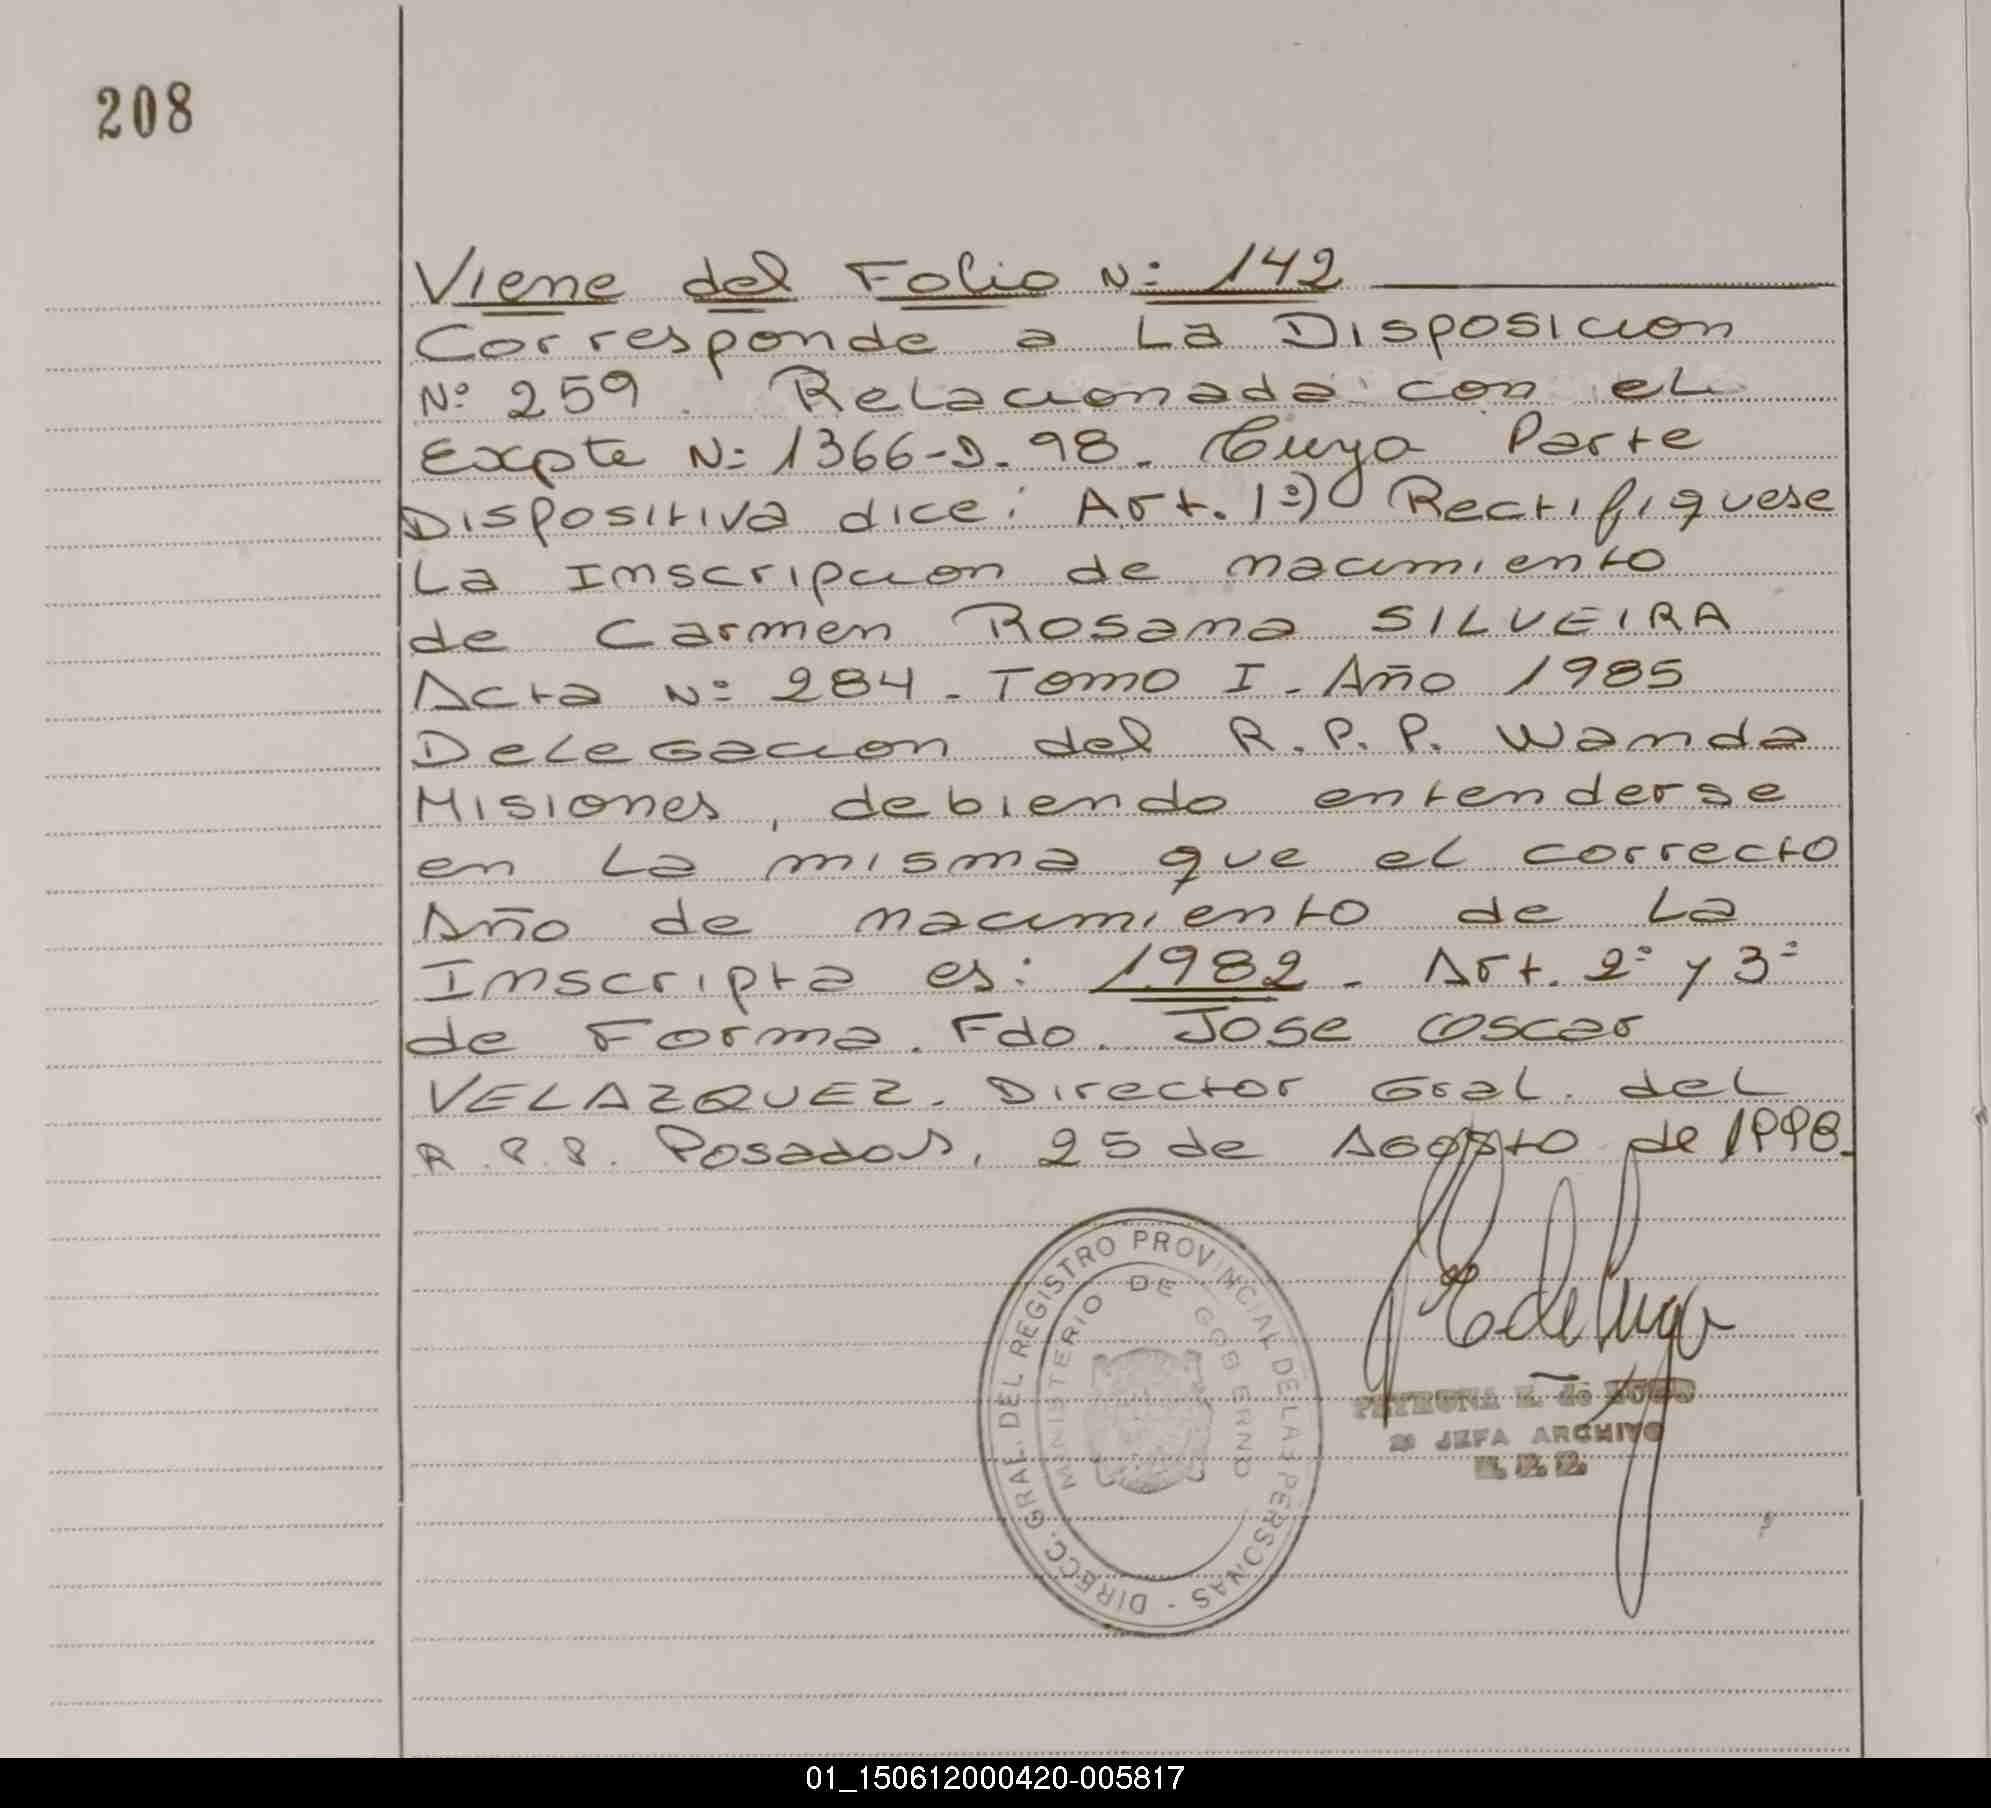 208
Viene del Folio Nº 142
Corresponde a La Disposicion
Nº 259. Relacionada con el
Expte Nº 1366-D-98. Cuya Parte
Dispositiva dice: Art. 1º) Rectifiquese
La Inscripcion de nacimiento
de Carmen Rosana SILVEIRA
Acta Nº 284 - Tomo I - Año 1985
Delegacion del R.P.P. Wanda
Misiones, debiendo entenderse
en La misma que el correcto
Año de nacimiento de La
Inscripta es: 1982 - Art. 2º y 3º
de Forma. Fdo. Jose Oscar
VELAZQUEZ. Director Gral. del
R.P.P. Posadas, 25 de Agosto de 1998.
DIRECC. GRAL. DEL REGISTRO PROVINCIAL DE LAS PERSONAS -
MINISTERIO DE GOBIERNO
PETRONA E. de LUGO
JEFA ARCHIVO
R. P. P.
01_150612000420-005817